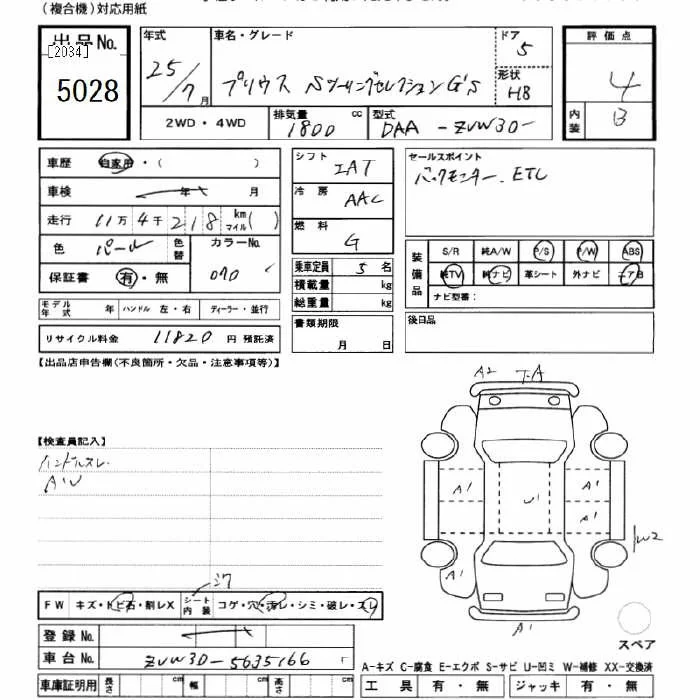 (複合機)対応用紙
出品No.
[2034]
5028
年式
25/7月
車名・グレード
プリウス SツーリングセレクションG'S
ドア
5
形状
HB
評価点
4
内装
B
2WD・4WD
排気量
1800 cc
型式
DAA-ZVW30-
車歴
自家用・( )
車検
年 月
走行
11万4千218 km マイル( )
色
パール
色替
カラーNo.
070
保証書
有・無
モデル年式
年
ハンドル 左・右
ディーラー・並行
リサイクル料金
11820 円 預託済
シフト
IAT
冷房
AAC
燃料
G
乗車定員
5名
積載量
kg
総重量
kg
書類期限
月 日
セールスポイント
バックモニター、ETC
装備品
S/R 純A/W P/S P/W ABS
純TV 純ナビ 革シート 外ナビ エアB
ナビ型番:
後日品
【出品店申告欄(不良箇所・欠品・注意事項等)】
【検査員記入】
ハンドルスレ
A2
A1
A1
A1
U1
A1
W2
A1
A1
FW キズ・トビ石・割レX
シート内装
コゲ・穴・汚レ・シミ・破レ・スレ
登録No.
車台No.
ZVW30-5635166
車庫証明用
長さ cm
幅 cm
高さ cm
スペア
A-キズ C-腐食 E-エクボ S-サビ U-凹ミ W-補修 XX-交換済
工具 有・無
ジャッキ 有・無